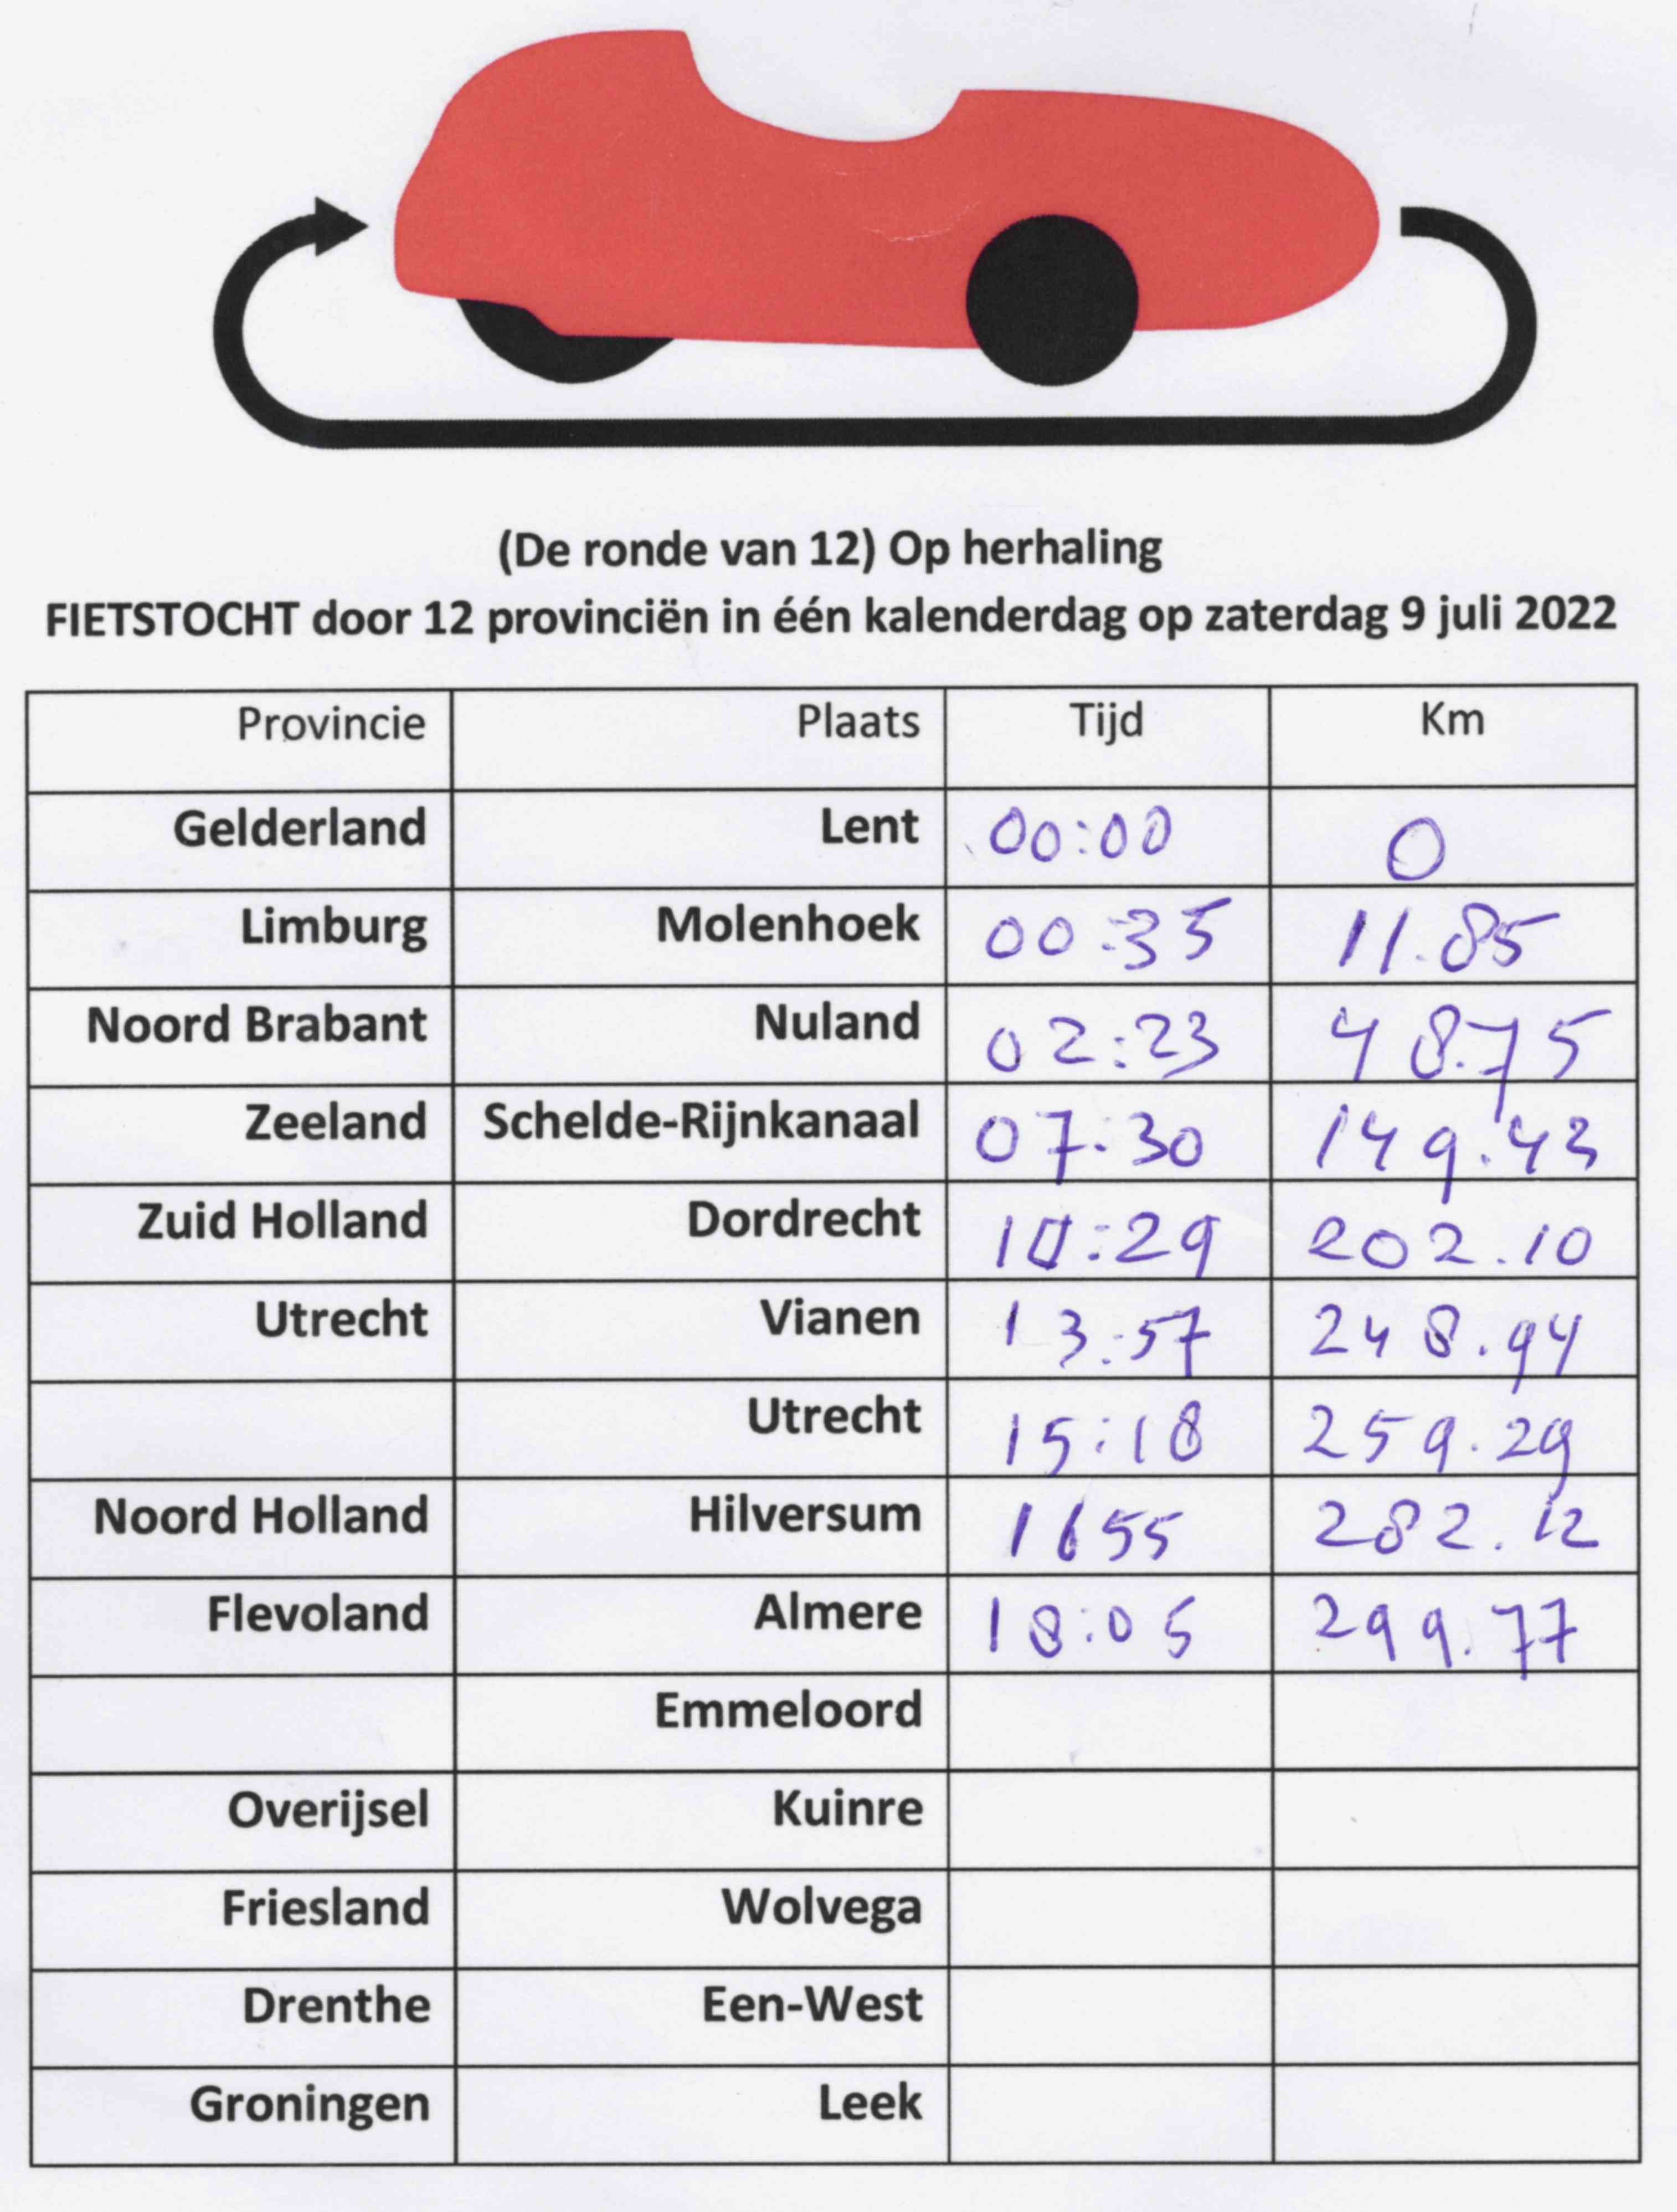 (De ronde van 12) Op herhaling
FIETSTOCHT door 12 provinciën in één kalenderdag op zaterdag 9 juli 2022
Provincie Plaats Tijd Km
Gelderland Lent 00:00 0
Limburg Molenhoek 00:35 11.85
Noord Brabant Nuland 02:23 48.75
Zeeland Schelde-Rijnkanaal 07.30 149.43
Zuid Holland Dordrecht 10:29 202.10
Utrecht Vianen 13:57 248.94
Utrecht 15:18 259.29
Noord Holland Hilversum 1655 282.12
Flevoland Almere 18:05 299.77
Emmeloord
Overijsel Kuinre
Friesland Wolvega
Drenthe Een-West
Groningen Leek